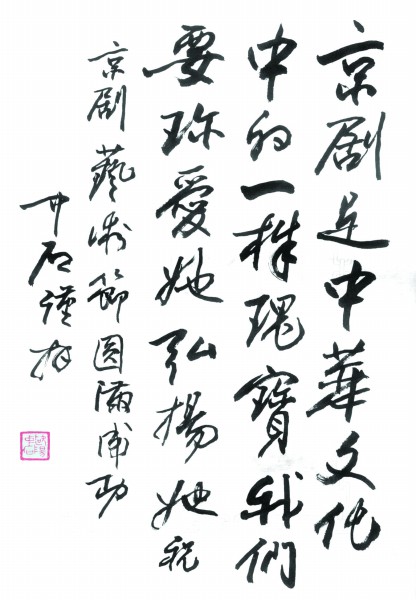 京劇是中華文化
中的一株瑰寶我們
要珍愛她弘揚她祝
京劇藝術節圓滿成功
中石謹
歐陽中石